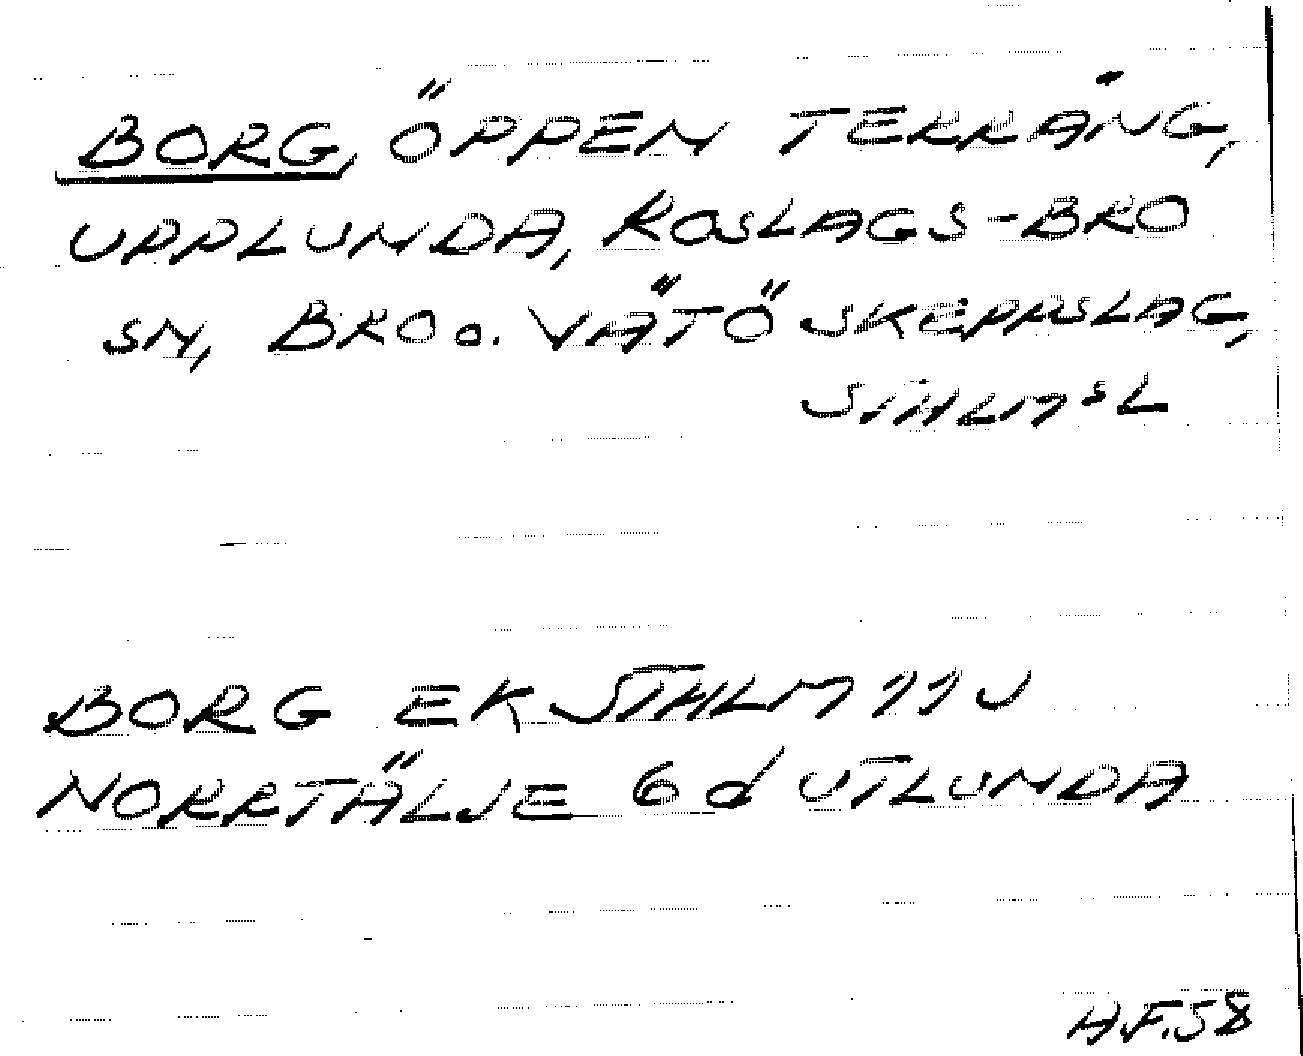 BORG, ÖPPEN TERRÄNG,
UPPLUNDA, ROSLAGS-BRO
SN, BRO o. VÄTÖ SKEPPSLAG,
STHLMSL
BORG EK STHLM 11 J
NORRTÄLJE 6 d UTLUNDA
H.F.58